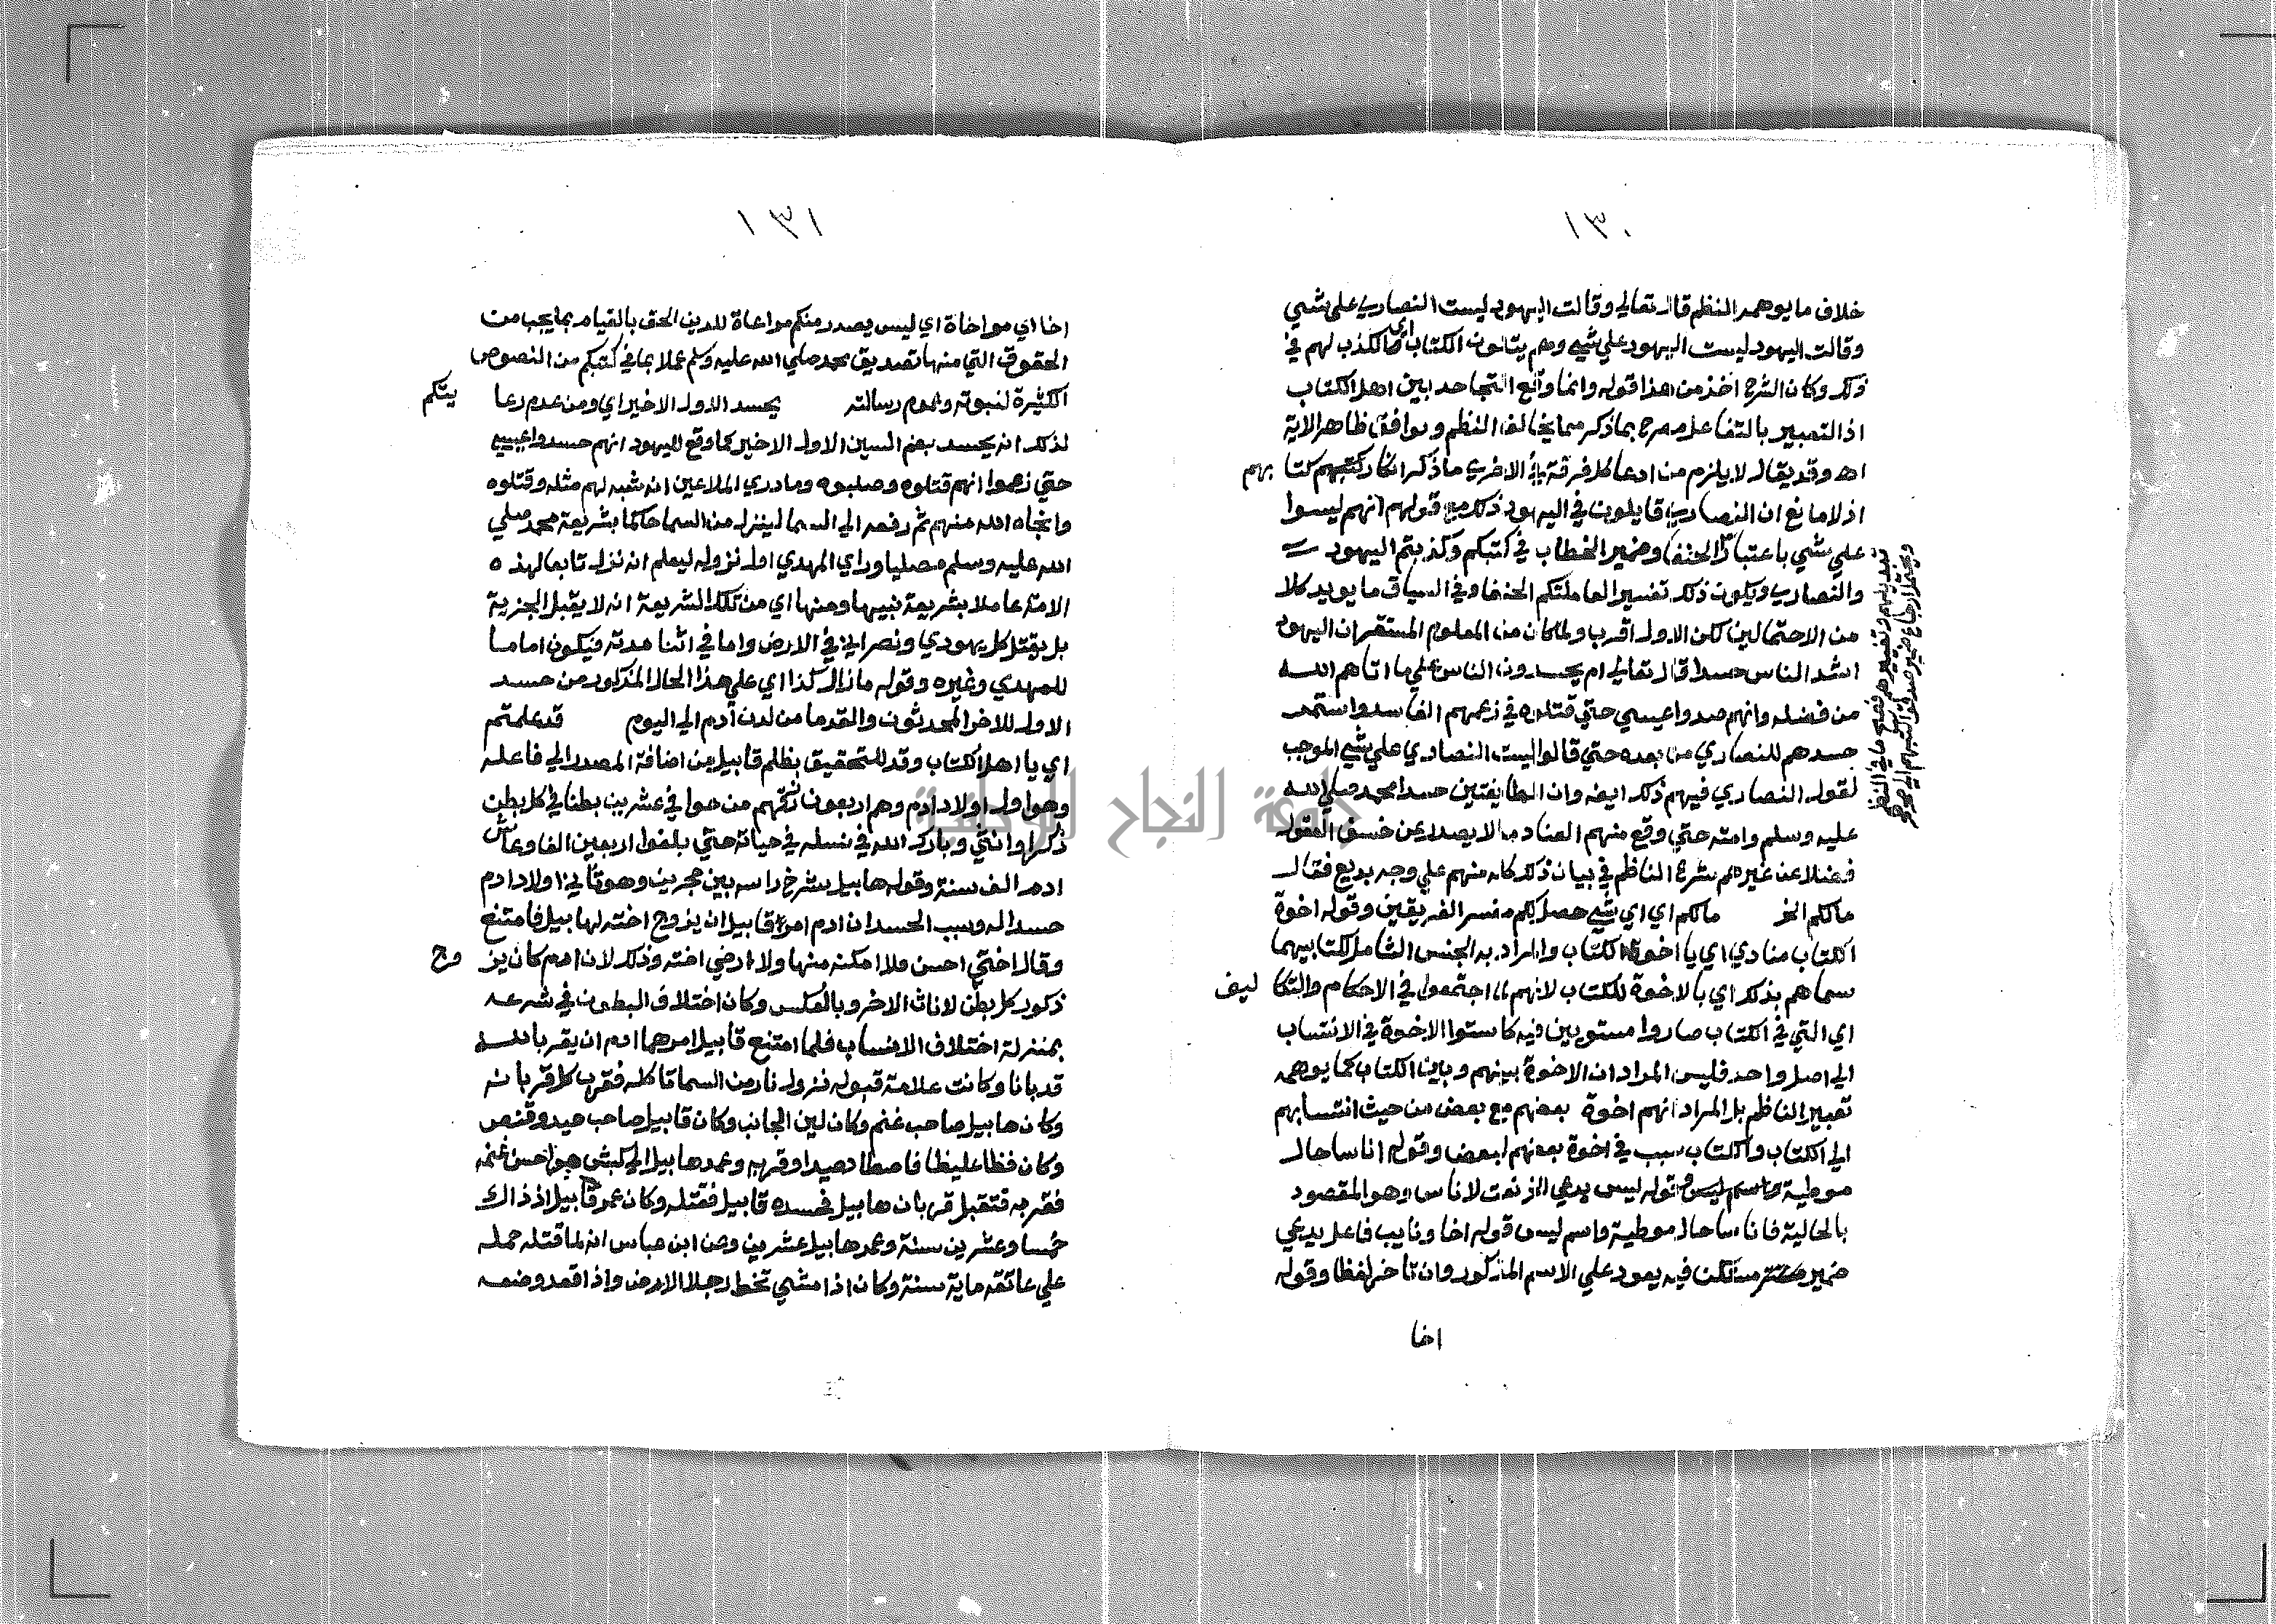 ١٣٠
خلاف ما يوهمه النظم قال تعالي وقالت اليهود ليست النصاري علي شيي
وقالت اليهود ليست اليهود علي شيي وهم يتلون الكتاب اي المكذب لهم في
ذلك وكان الشرح اخذ من هذا قوله وانما وقع التجاحد بين اهل الكتاب
اذ التعبير بالتفاعل مصرح بما ذكر مما يخالف النظم ويوافق ظاهر الاية
اه وقد يقال لا يلزم من ادعا كل فرقة الاخري ما ذكر انكار كتبهم كتابهم
اذ لا مانع ان النصاري قايلون في اليهود ذلك مع قولهم انهم ليسوا
علي شيي باعتبار الحنفا وضمير الخطاب في كتبكم وكذبتم اليهود
والنصاري ويكون ذلك تفسير لعاملتكم الحنفا وفي السياق ما يويد كلا
من الاحتمالين لكن الاول اقرب ولما كان من المعلوم المستقر ان اليهود
اشد الناس حسدا قال تعالي ام يحسدون الناس علي ما اتاهم الله
من فضله وانهم حسدوا عيسي حتي قتلوه في زعمهم الفاسد واستمر
حسدهم للنصاري من بعده حتي قالوا ليست النصاري علي شيي الموجب
لقول النصاري فيهم ذلك ايضا وان الطايفتين حسدا محمد صلي الله
عليه وسلم وامته حتي وقع منهم العناد ما لا يصدر عن خسف العقول
فضلا عن غيرهم شرع الناظم في بيان ذلك كله منهم علي وجه بديع فقال
مالكم الخ مالكم اي اي شيي حصل لكم مفسر الفريقين وقوله اخوة
الكتاب منادي اي يا اخوة الكتاب والمراد به الجنس الشامل لكتابيهما
سماهم بذلك اي بالاخوة للكتاب لانهم لما اجتمعوا في الاحكام والتكاليف
اي التي في الكتاب صاروا مستويين فيه كاستوا الاخوة في الانتساب
الي اصل واحد فليس المراد ان الاخوة بينهم وبين الكتاب كما يوهمه
تعبير الناظم بل المراد انهم اخوة بعضهم مع بعض من حيث انتسابهم
الي الكتاب والكتاب سبب في اخوة بعضهم لبعض وقوله اناسا حال
موطية وقوله ليس يدعي الخ نعت لاناس وهو المقصود
بالحالية فاناسا حال موطية واسم ليس قوله اخا ونايب فاعل يدعي
ضمير مستتر فيه يعود علي الاسم المذكور وان تاخر لفظا وقوله
اخا
١٣١
اخا اي مواخاة اي ليس يصدر منكم مراعاة للدين الحق بالقيام بما يجب من
الحقوق التي منها تصديق محمد صلي الله عليه وسلم عملا بما في كتبكم من النصوص
الكثيرة لنبوته وعموم رسالته يحسد الاول الاخير اي ومن عدم رعايتكم
لذلك انه يحسد بضم السين الاول الاخير كما وقع لليهود انهم حسدوا عيسي
حتي زعموا انهم قتلوه وصلبوه وما دري الملاعين انه شبه لهم مثله وقتلوه
وانجاه الله منهم ثم رفعه الي السما لينزل من السما حاكما بشريعة محمد صلي
الله عليه وسلم مصليا وراي المهدي اول نزوله ليعلم انه نزل تابعا لهذه
الامة عاملا بشريعة نبيها ومنها اي من تلك الشريعة انه لا يقبل الجزية
بل يقتل كل يهودي ونصراني في الارض واما في اثنا مدته فيكون اماما
للمهدي وغيره وقوله ما زال كذا اي علي هذا الحال المذكور من حسد
الاول للاخر المحدثون والقدما من لدن آدم الي اليوم قد علمتم
اي يا اهل الكتاب وقد للتحقيق بظلم قابيل من اضافة المصدر الي فاعله
وهو اول اولاد ادم وهم اربعون من حوا في عشرين بطنا في كل بطن
ذكر وانثي وبارك الله في نسله في حياته حتي بلغوا اربعين الفا وعاش
ادم الف سنة وقوله هابيل بشرخ راسه بين حجرين وهو ثاني اولاد ادم
حسدا له وسبب الحسد ان ادم امر قابيل ان يزوج اخته لهابيل فامتنع
وقال اختي احسن فلا امكنه منها ولا ارضي اخته وذلك لان ادم كان يزوج
ذكور كل بطن لاناث الاخر وبالعكس وكان اختلاف البطون في شرعه
بمنزلة اختلاف الانساب فلما امتنع قابيل امرهما ادم ان يقربا لله
قربانا وكانت علامة قبوله نزول نار من السما تاكله فقرب كل قربانه
وكان هابيل صاحب غنم وكان لين الجانب وكان قابيل صاحب صيد وقنص
وكان فظا غليظا فاصطاد صيدا وقربه وعمد هابيل الي كبش هو احسن غنمه
فقربه فتقبل قربان هابيل فحسده قابيل فقتله وكان عمر قابيل اذ ذاك
خمسا وعشرين سنة وعمر هابيل عشرين وعن ابن عباس انه لما قتله حمله
علي عاتقه ماية سنة وكان اذا مشي تخط رجلا الارض واذا قعد وضعه
جامعة النجاح الوطنية